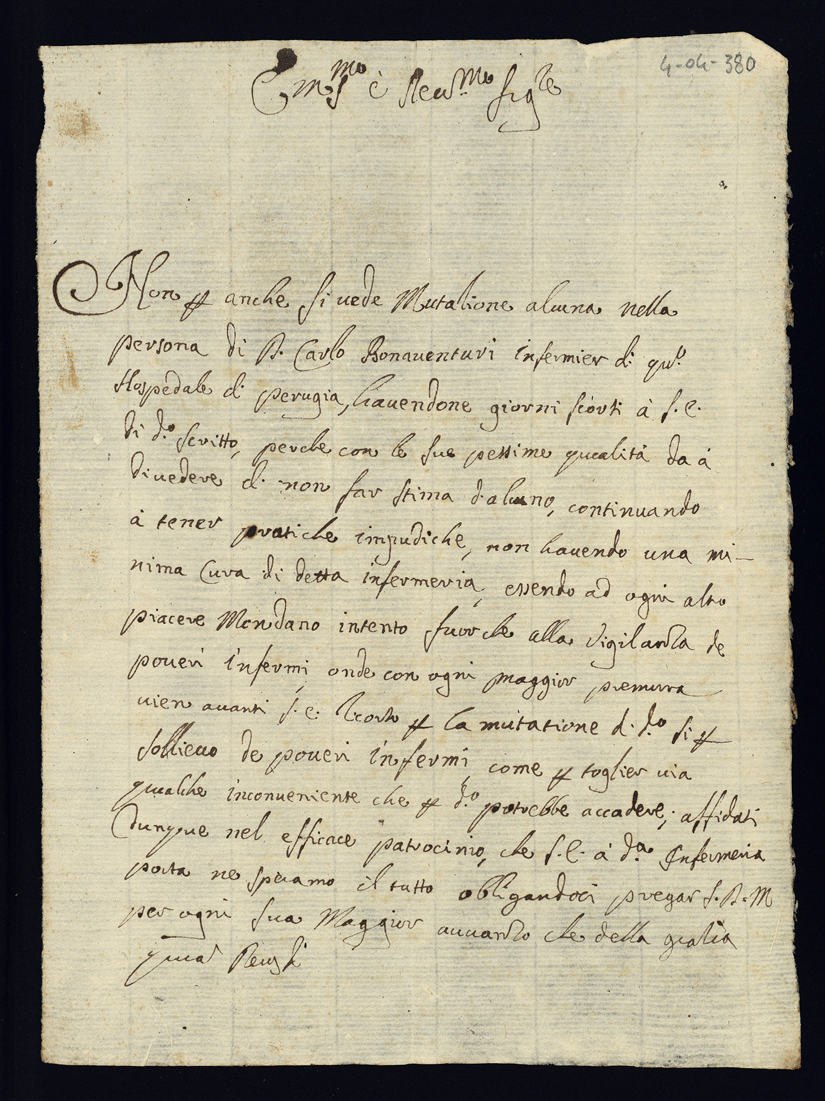 4-04-380
Em.mo è Reu.mo Sig.re
Non p anche si uede Mutatione alcuna nella
persona di P. Carlo Bonauenturi infermier di qu.o
Hospedale di perugia, hauendone giorni scorti à S. E.
di d.o scritto, perche con le sue pessime qualità da à
diuedere di non far stima d'alcuno, continuando
à tener pratiche impudiche, non hauendo una mi-
nima Cura di detta infermeria, essendo ad ogni altro
piacere Mondano intento fuor che alla Vigilanza de
poueri infermi onde con ogni maggior premura
uien auanti S. E. p la mutatione d. d.o si p
sollieuo de poueri infermi come p toglier uia
qualche inconueniente che p d.o potrebbe accadere; affidati
Dunque nel efficace patrocinio, che S. E. à d.a Infermeria
porta ne speramo il tutto obligandoci pregar S. D. M
per ogni sua Maggior auuanzo che della gratia